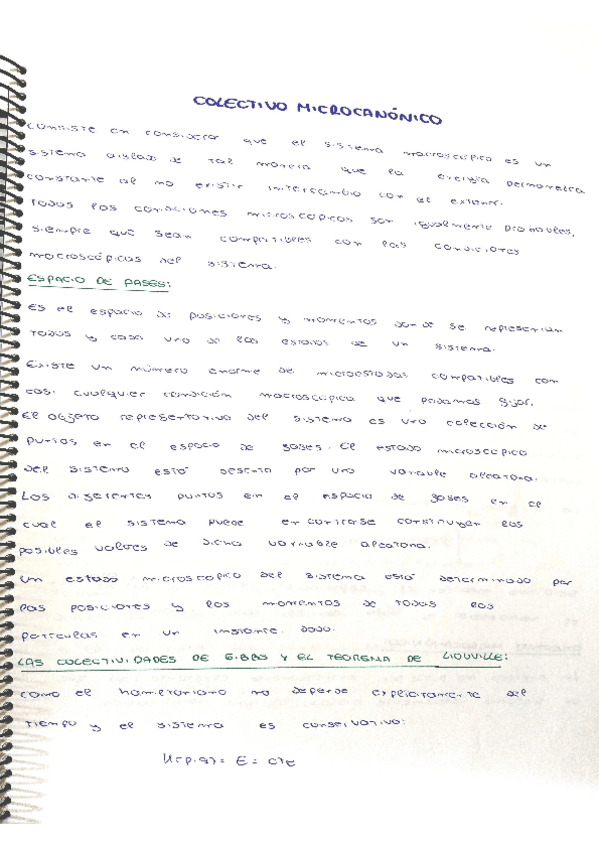 COLECTIVO MICROCANÓNICO
Consiste en considerar que el sistema macroscópico es un
sistema aislado de tal manera que la energía permanezca
constante al no existir intercambio con el exterior.
Todas las condiciones microscópicas son igualmente probables,
siempre que sean compatibles con las condiciones
macroscópicas del sistema.
ESPACIO DE FASES:
Es el espacio de posiciones y momentos donde se representan
todos y cada uno de los estados de un sistema.
Existe un número enorme de microestados compatibles con
casi cualquier condición macroscópica que podamos fijar.
El objeto representativo del sistema es una colección de
puntos en el espacio de fases. El estado microscópico
del sistema está descrito por una variable aleatoria.
Los diferentes puntos en el espacio de fases en el
cual el sistema puede encontrarse constituyen los
posibles valores de dicha variable aleatoria.
Un estado microscópico del sistema está determinado por
las posiciones y los momentos de todas las
partículas en un instante dado.
LAS COLECTIVIDADES DE GIBBS Y EL TEOREMA DE LIOUVILLE:
Como el hamiltoniano no depende explícitamente del
tiempo y el sistema es conservativo:
H(p,q) = E = cte